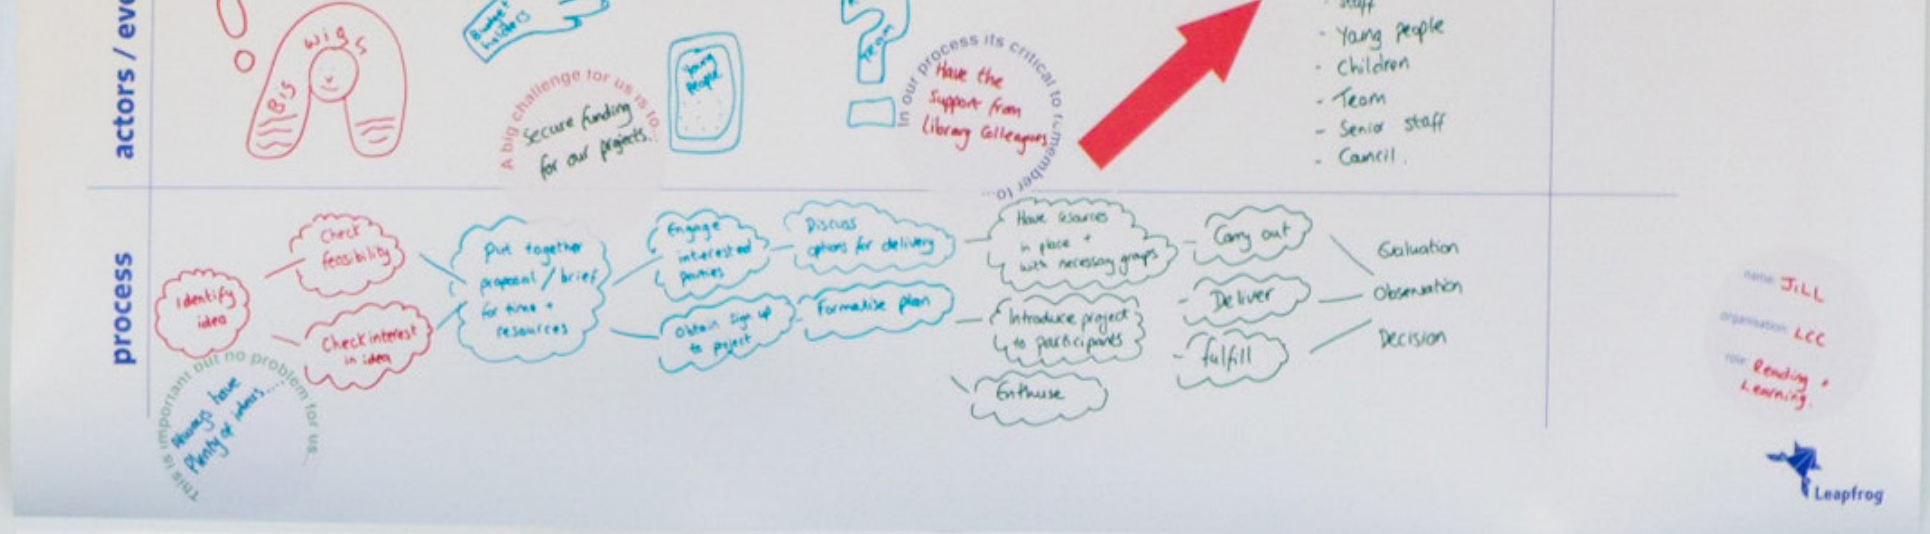 actors / eve
Big
wigs
Budget
holders
A big challenge for us is to...
Secure funding
for our projects.
Young
people
Team
In our process its critical to remember to...
Have the
support from
Library Colleagues
- Staff
- Young people
- Children
- Team
- Senior staff
- Council.
process
Identify
idea
Check
feasibility
Check interest
in idea
Put together
proposal / brief
for time +
resources
Engage
interested
parties
Obtain sign up
to project
Discuss
options for delivery
Formalise plan
Have resources
in place +
with necessary groups
Introduce project
to participants
Enthuse
Carry out
Deliver
fulfill
Evaluation
Observation
Decision
This is important but no problem for us...
Always have
Plenty of ideas....
name: JILL
organisation: LCC
role: Reading +
Learning.
Leapfrog